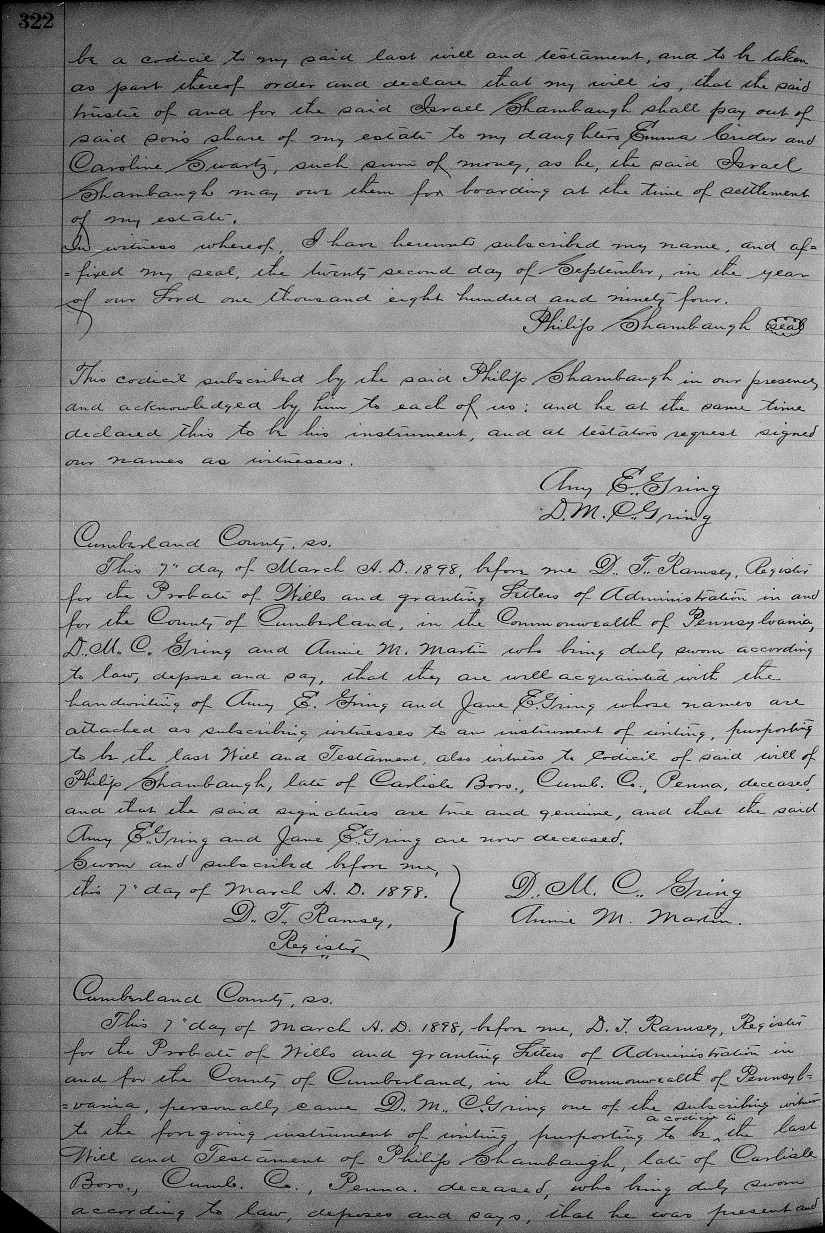 322
be a codicil to my said last will and testament, and to be taken
as part thereof order and declare that my will is, that the said
trustee of and for the said Israel Shambaugh shall pay out of
said son's share of my estate to my daughters Emma Crider and
Caroline Swartz, such sum of money, as he, the said Israel
Shambaugh may owe them for boarding at the time of settlement
of my estate.
In witness whereof, I have hereunto subscribed my name, and af=
=fixed my seal, the twenty second day of September, in the year
of our Lord one thousand eight hundred and ninety four.
Philip Shambaugh seal
This codicil subscribed by the said Philip Shambaugh in our presence,
and acknowledged by him to each of us; and he at the same time
declared this to be his instrument, and at testators request signed
our names as witnesses.
Amy E. Gring
D. M. C. Gring
Cumberland County, ss.
This 7" day of March A. D. 1898, before me D. T. Ramsey, Register
for the Probate of Wills and granting Letters of Administration in and
for the County of Cumberland, in the Commonwealth of Pennsylvania,
D. M. C. Gring and Annie M. Martin who being duly sworn according
to law, depose and say, that they are well acquainted with the
handwriting of Amy E. Gring and Jane E. Gring whose names are
attached as subscribing witnesses to an instrument of writing, purporting
to be the last Will and Testament, also witness to Codicil of said will of
Philip Shambaugh, late of Carlisle Boro., Cumb. Co., Penna, deceased,
and that the said signatures are true and genuine, and that the said
Amy E. Gring and Jane E. Gring are now deceased.
Sworn and subscribed before me,
this 7" day of March A. D. 1898.
D. T. Ramsey,
Register
D. M. C. Gring
Annie M. Martin.
Cumberland County, ss.
This 7" day of March A. D. 1898, before me, D. T. Ramsey, Register
for the Probate of Wills and granting Letters of Administration in
and for the County of Cumberland, in the Commonwealth of Pennsyl=
=vania, personally came D. M. C. Gring one of the subscribing witness
to the foregoing instrument of writing, purporting to be a codicil to the last
Will and Testament of Philip Shambaugh, late of Carlisle
Boro., Cumb. Co., Penna. deceased, who being duly sworn
according to law, deposes and says, that he was present and